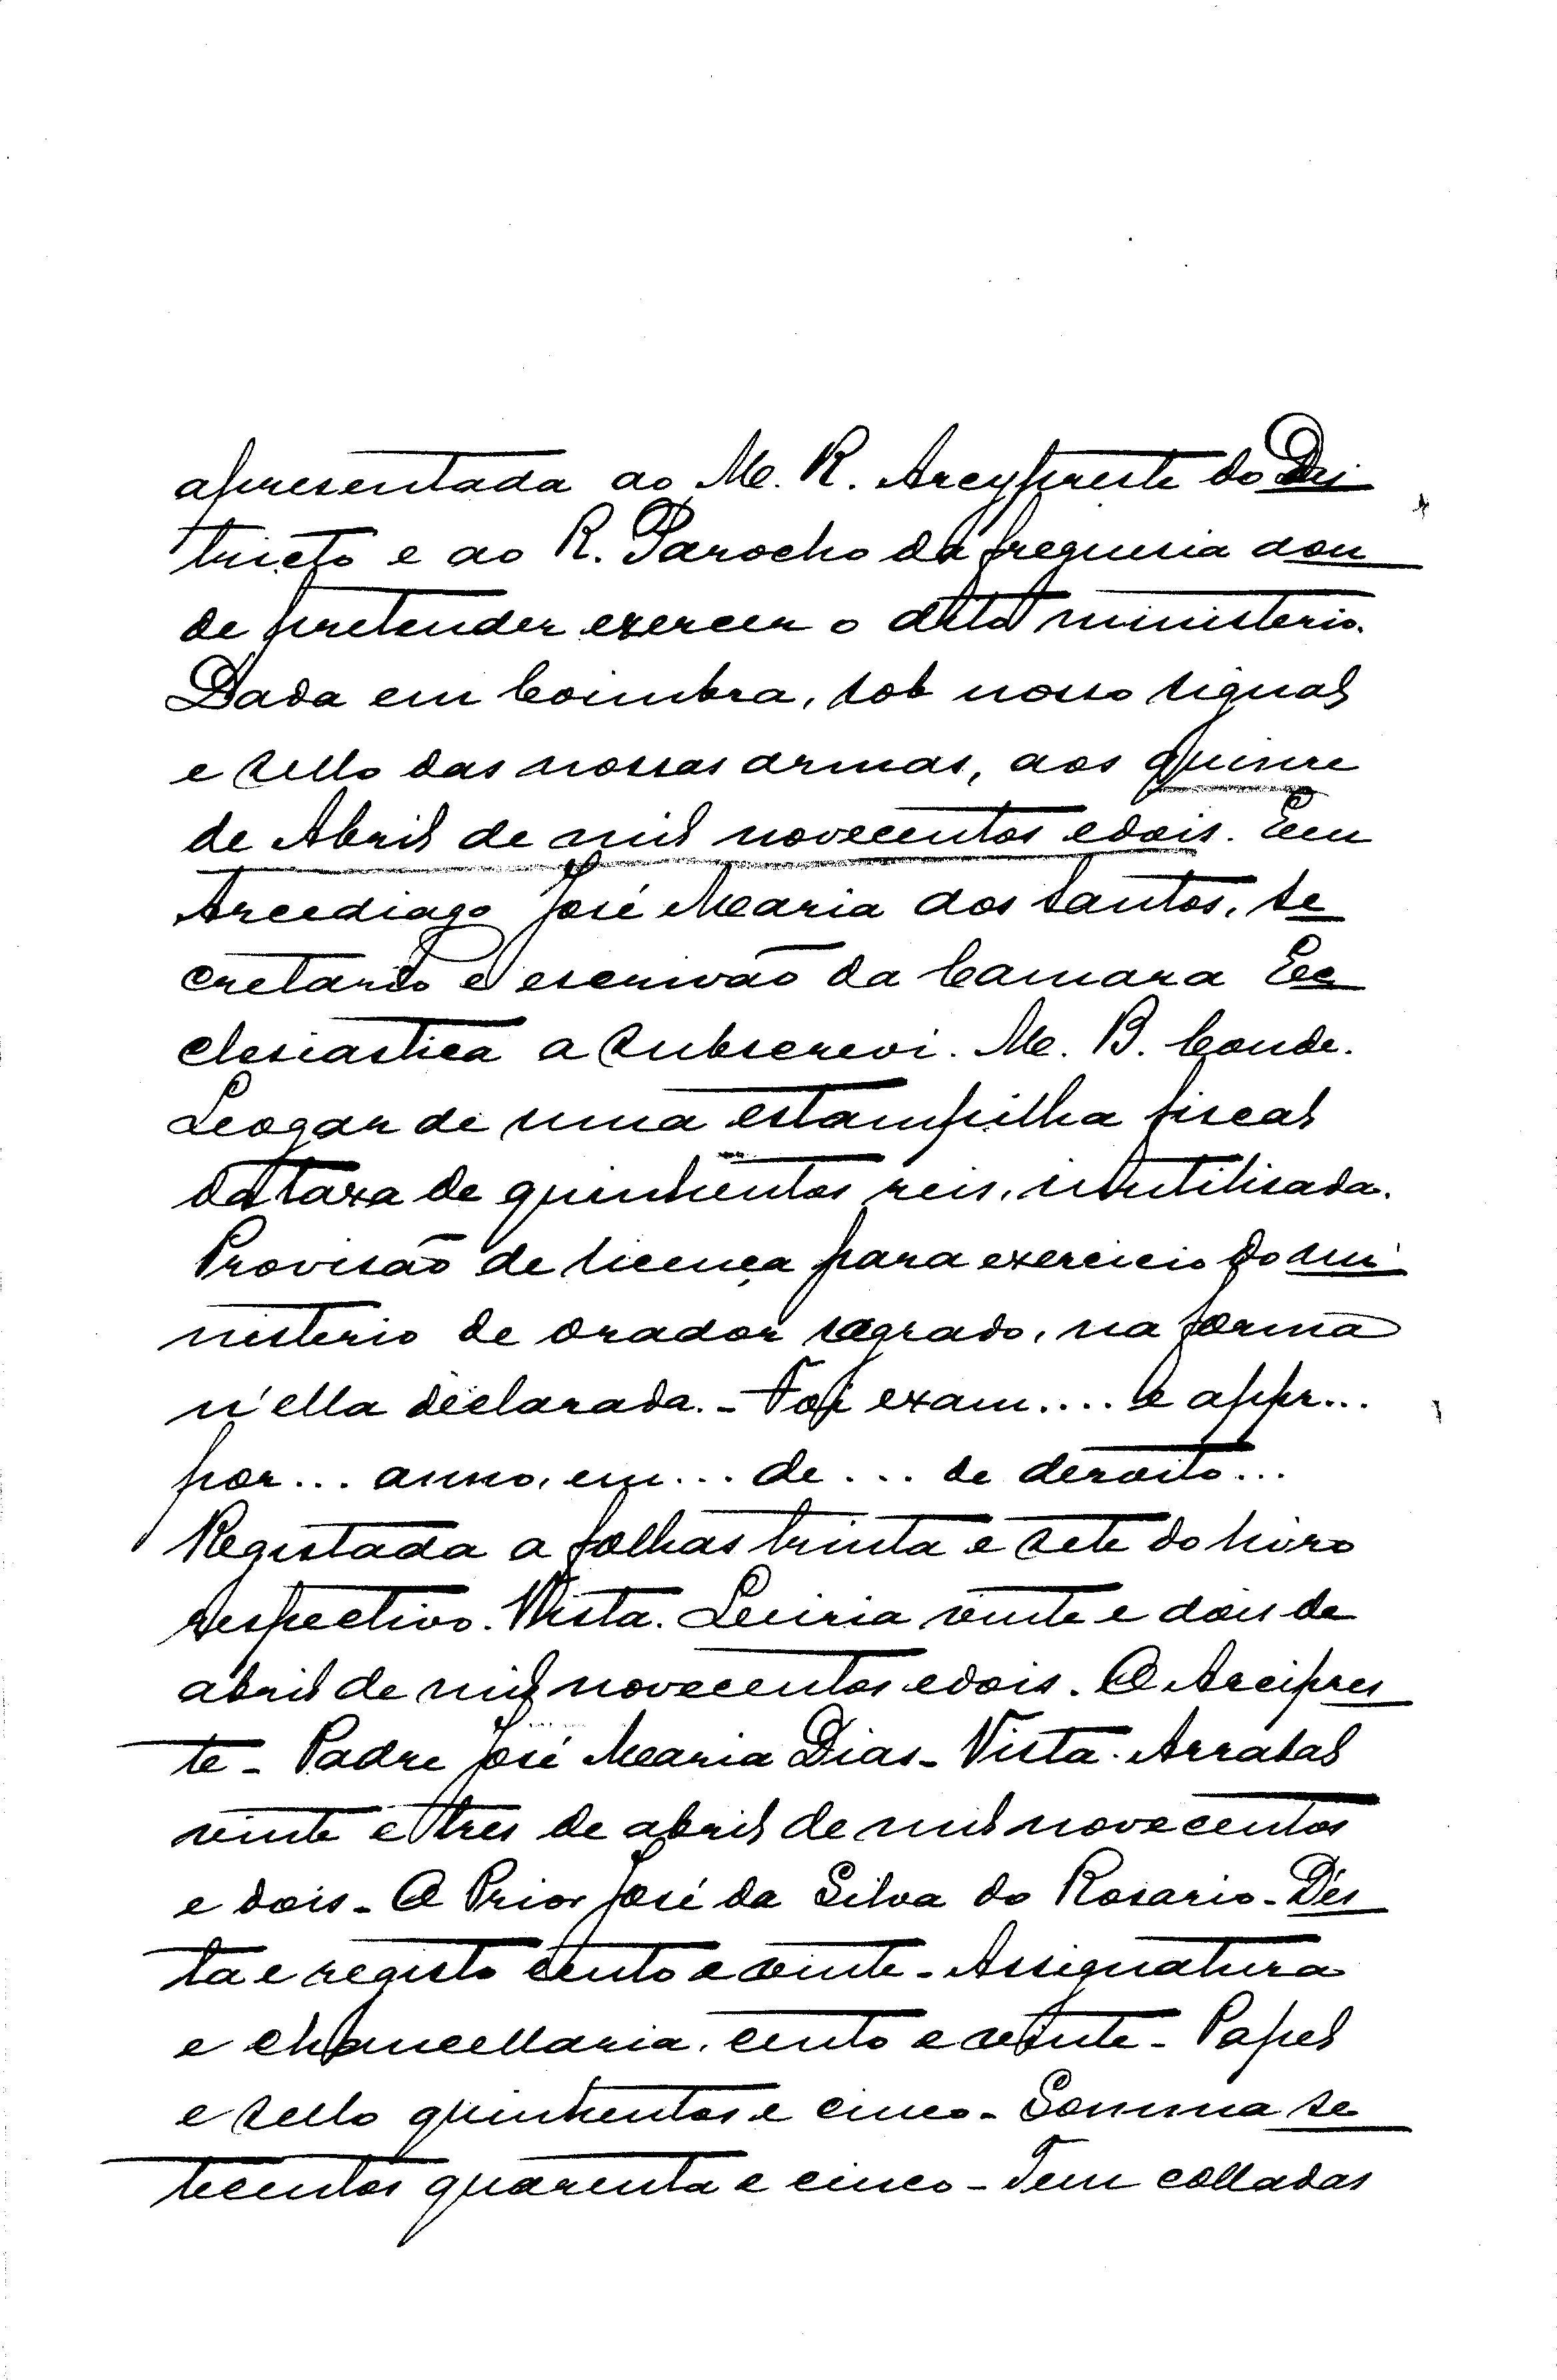 apresentada ao M. R. Arcypreste do Dis
tricto e ao R. Parocho da freguesia aon
de pretender exercer o dito ministerio.
Dada em Coimbra, sob nosso signal
e sello das nossas armas, aos quinze
de Abril de mil novecentos e dois. Eeu
Arcediago José Maria dos Santos, Se
cretario e escrivão da Camara Ec
clesiastica a subscrevi. M. B. Conde.
Logar de uma estampilha fiscal
da taxa de quinhentos reis, inutilisada.
Provisão de licença para exercicio do mi
nisterio de orador sagrado, na forma
n'ella declarada. - Foi exam.... e appr...
por... anno, em... de... de dezoito...
Registada a folhas trinta e sete do livro
respectivo. Vista. Leiria vinte e dois de
abril de mil novecentos e dois. O Arcipres
te - Padre José Maria Dias - Vista. Arrabal
vinte e tres de abril de mil novecentos
e dois - O Prior José da Silva do Rosario - Des
ta e registo cento e vinte - Assignatura
e chancellaria, cento e vinte - Papel
e sello quinhentos e cinco - Somma se
tecentos quarenta e cinco - Tem colladas